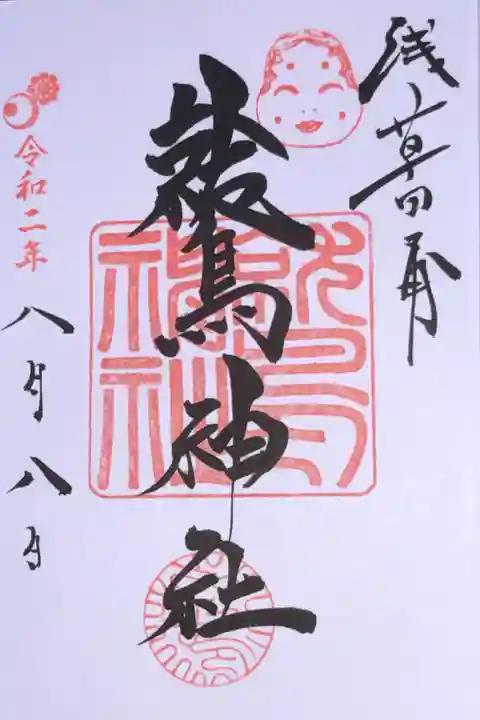 浅草田甫
鷲神社
鷲神社
令和二年
八月八日